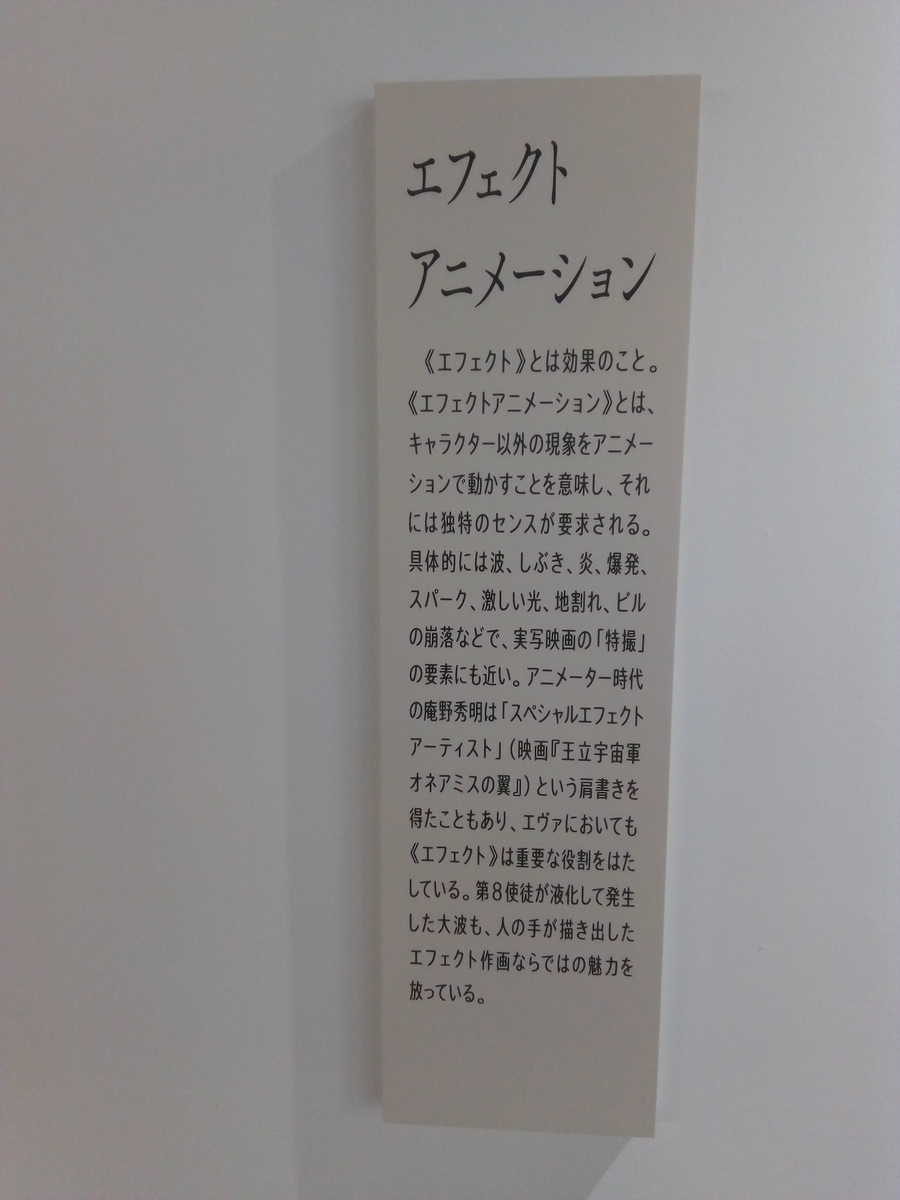 エフェクト
アニメーション
《エフェクト》とは効果のこと。
《エフェクトアニメーション》とは、
キャラクター以外の現象をアニメー
ションで動かすことを意味し、それ
には独特のセンスが要求される。
具体的には波、しぶき、炎、爆発、
スパーク、激しい光、地割れ、ビル
の崩落などで、実写映画の「特撮」
の要素にも近い。アニメーター時代
の庵野秀明は「スペシャルエフェクト
アーティスト」（映画『王立宇宙軍
オネアミスの翼』）という肩書きを
得たこともあり、エヴァにおいても
《エフェクト》は重要な役割をはた
している。第8使徒が液化して発生
した大波も、人の手が描き出した
エフェクト作画ならではの魅力を
放っている。